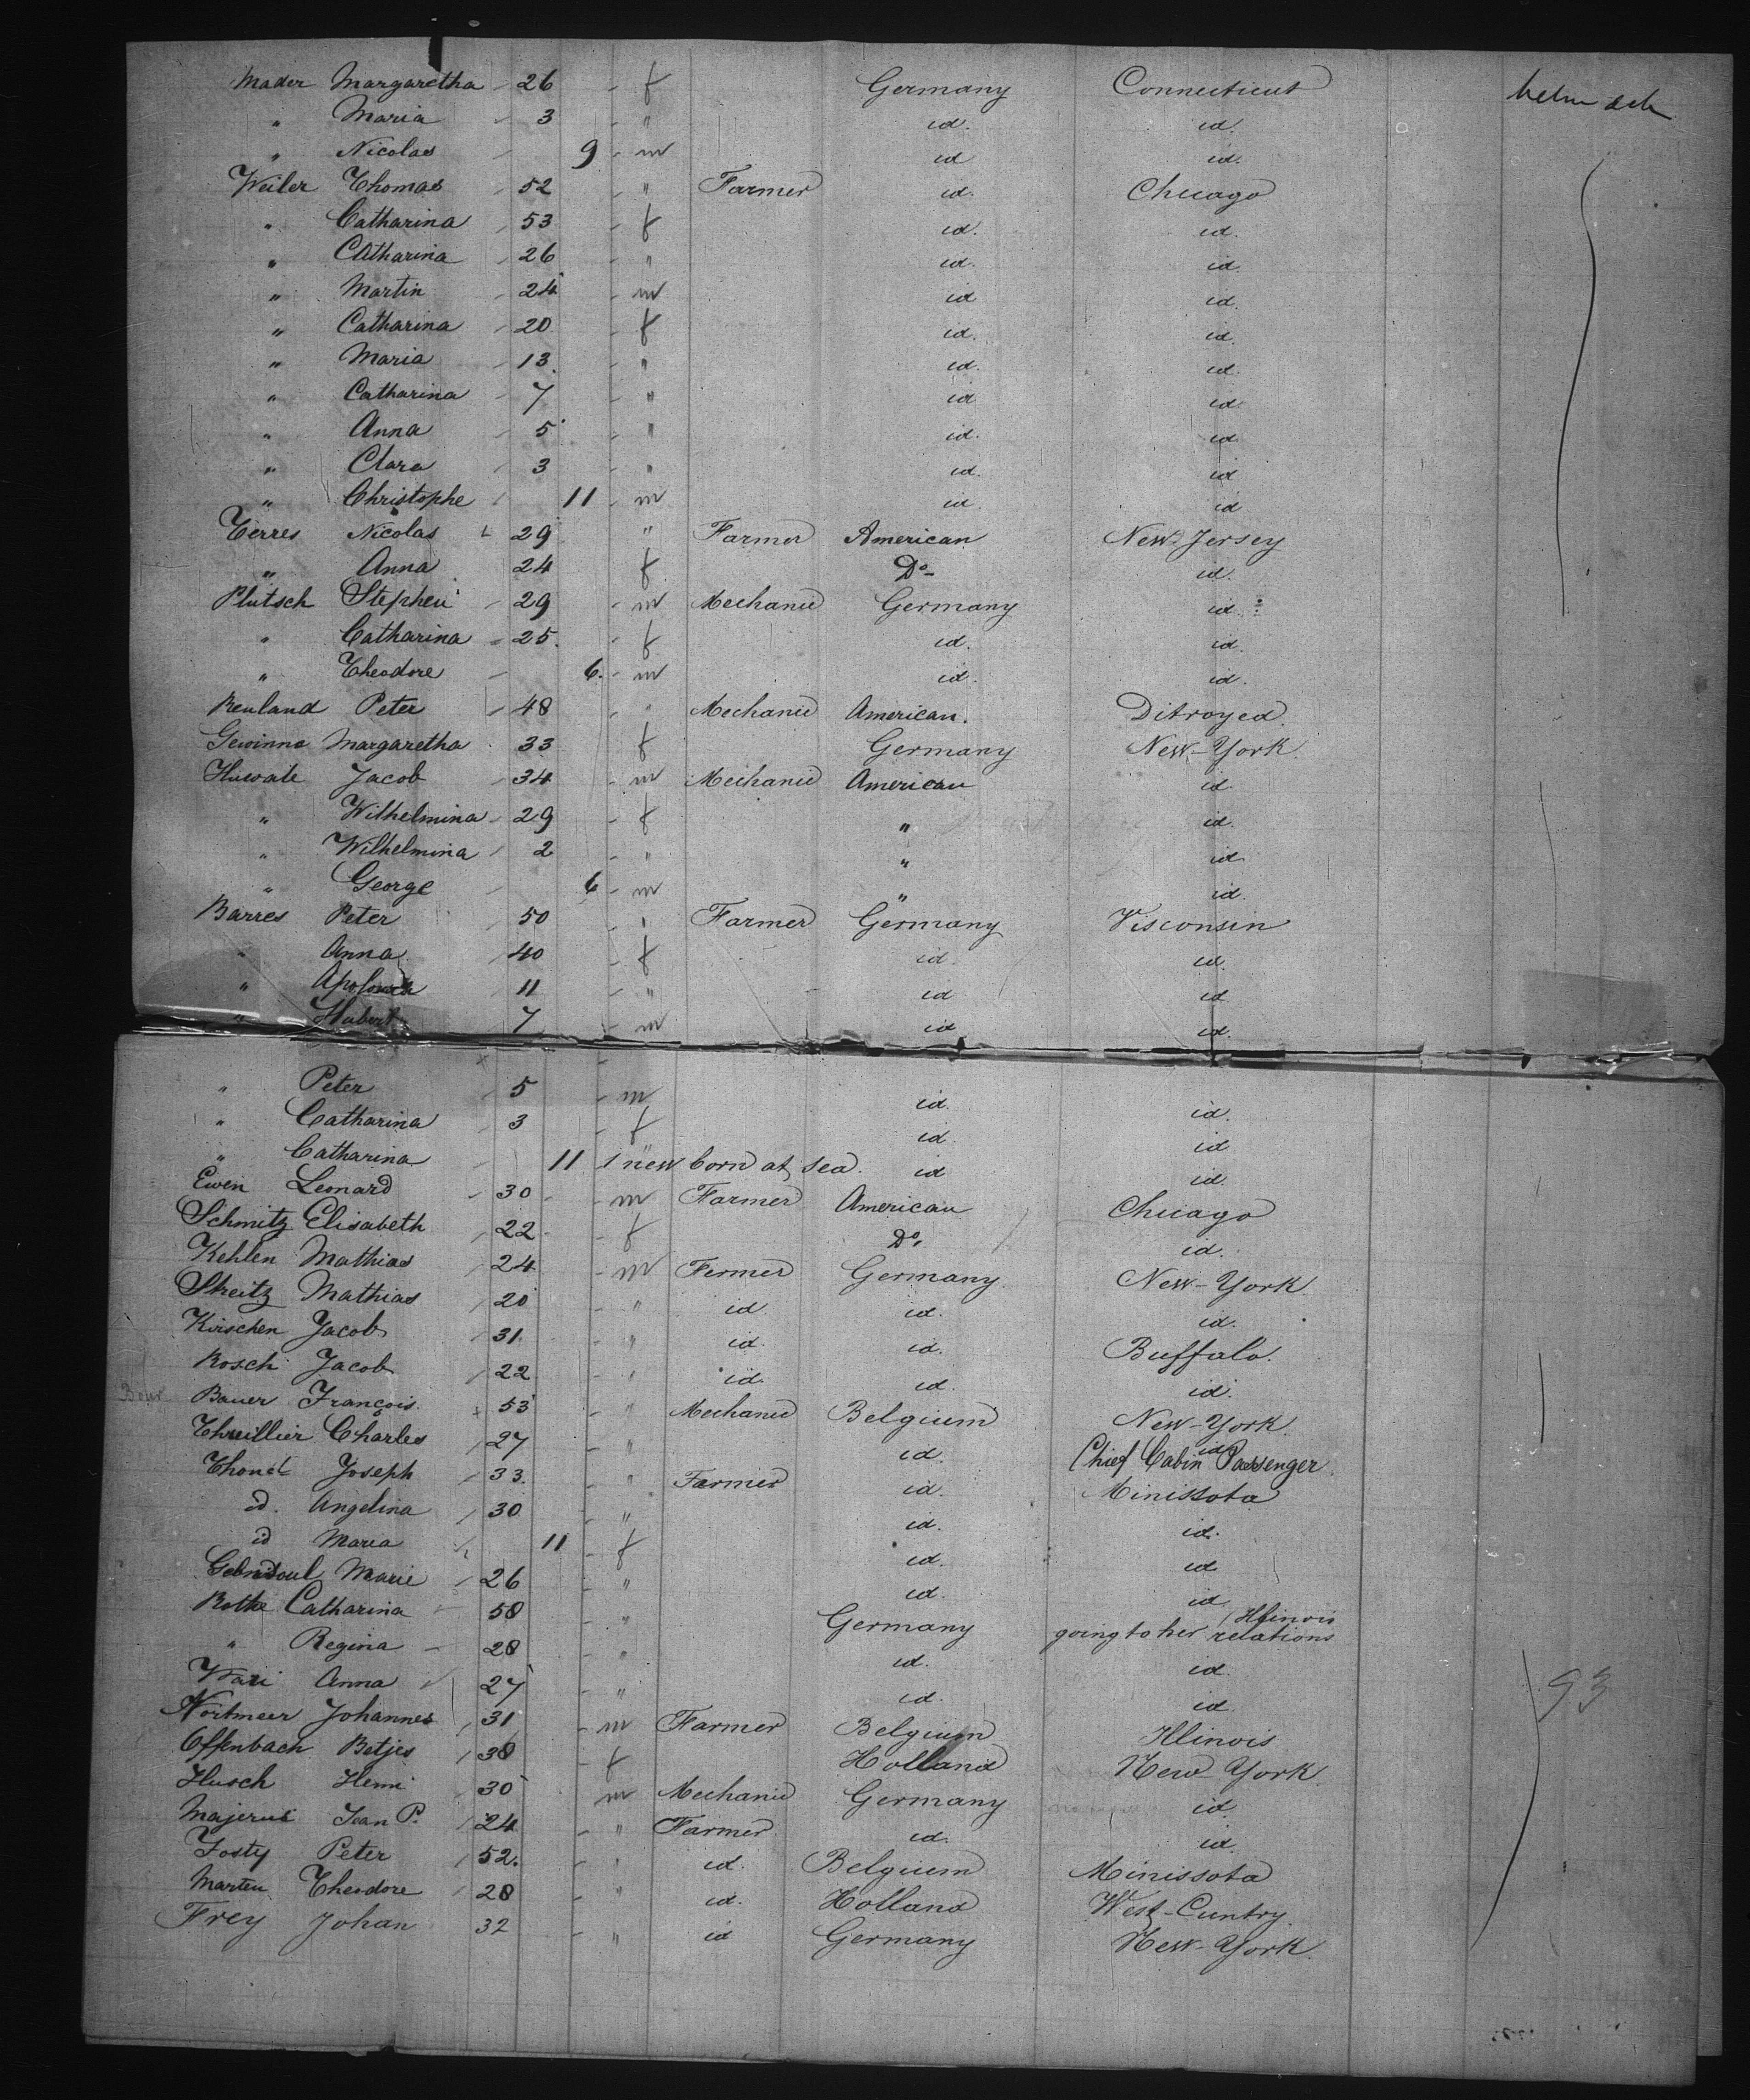 Mader Margaretha 26 f Germany Connecticut
" Maria 3 " id. id.
" Nicolas 9 m id id.
Weiler Thomas 52 " Farmer id. Chicago
" Catharina 53 f id. id.
" Catharina 26 " id. id.
" Martin 24 m id id.
" Catharina 20 f id. id.
" Maria 13. " id. id.
" Catharina 7 " id id.
" Anna 5 " id. id
" Clara 3 " id. id
" Christophe 11 m id. id
Terres Nicolas 29 " Farmer American New-Jersey
" Anna 24 f Do id.
Plutsch Stephen 29 m Mechanic Germany id.
" Catharina 25. f id. id.
" Theodore 6. m id. id.
Reuland Peter 48 " Mechanic American. Ditroyed.
Gewinne Margaretha 33 f Germany New-York.
Huwate Jacob 34 m Mechanic American id.
" Wilhelmina 29 f " id.
" Wilhelmina 2 " " id
" George 6 m " id.
Barres Peter 50 " Farmer Germany Visconsin
" Anna 40 f id. id.
" 11 " id id
" Hubert 7 m id id.
" Peter 5 m id. id.
" Catharina 3 f id. id
" Catharina 11 1 new born at sea. id id.
Ewen Leonard 30 m Farmer American Chicago
Schmitz Elisabeth 22 f Do id.
Kehlen Mathias 24 m Fermer Germany. New-York.
Mathias 20 " id id. id.
Kirschen Jacob 31. " id. id. Buffalo.
Rosch Jacob 22 " id. id. id.
Bauer François 53 " Mechanic Belgium New-York.
Thuillier Charles 27 " id. id Chief Cabin Passenger.
Joseph 33. " Farmer id. Minissota
id. Angelina 30 " id. id.
id Maria 11 f id. id
Marie 26 " id. id
Rothe Catharina 58 " Germany going to her relations Illinois
" Regina 28 " id. id.
Anna 27 " id. id.
Nortmeer Johannes 31 m Farmer Belgium Illinois
Offenbach Betjes 38 f Holland New-York.
Husch Henri 30 m Mechanic Germany id.
Majerus Jean P. 24 " Farmer id. id.
Peter 52. " id. Belgium Minissota
Marten Theodore 28 " id. Holland West-Cuntry.
Frey Johan 32 " id Germany New-York.
93